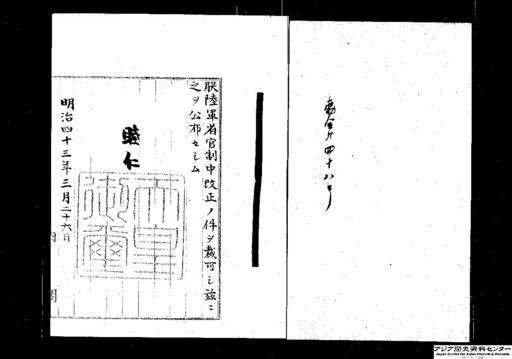 勅令第四十八号
朕陸軍省官制中改正ノ件ヲ裁可シ茲ニ
之ヲ公布セシム
睦仁
天皇御璽
明治四十三年三月二十六日
内閣
アジア歴史資料センター
Japan Center for Asian Historical Records